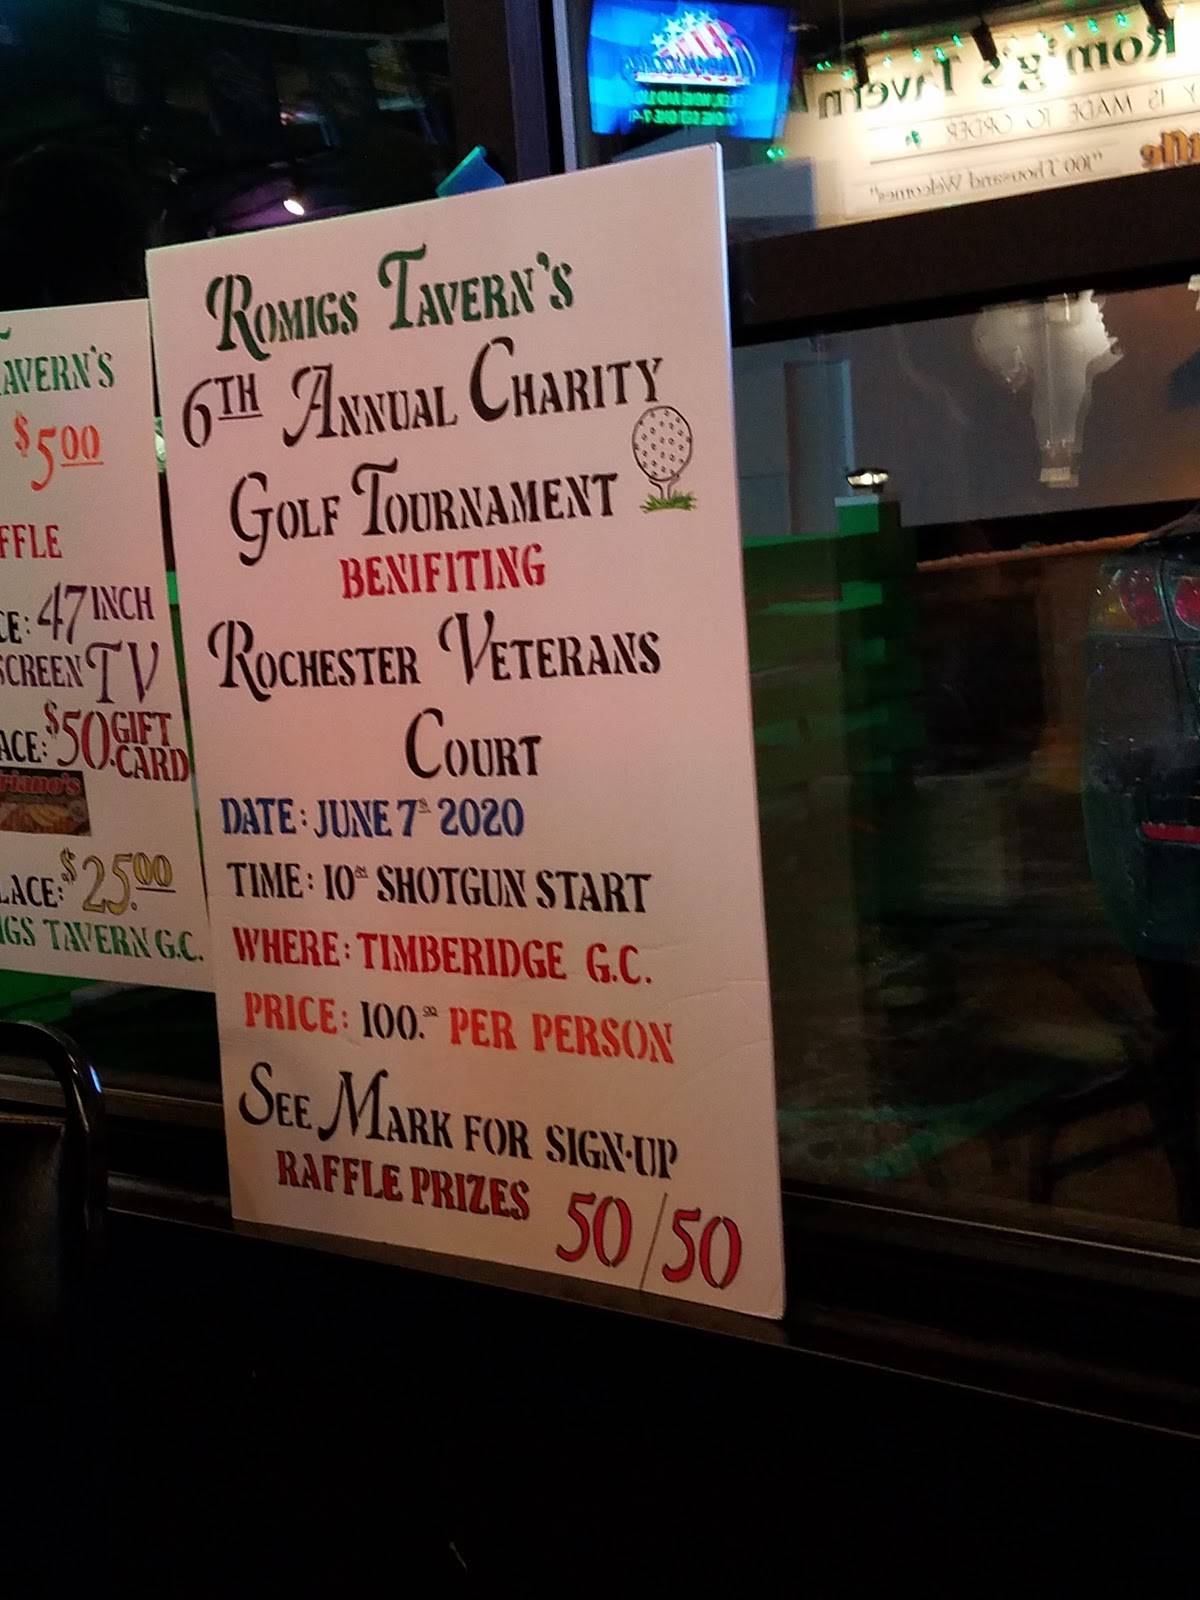 ROMIGS TAVERN'S
6TH ANNUAL CHARITY
GOLF TOURNAMENT
BENIFITING
ROCHESTER VETERANS
COURT
DATE: JUNE 7 2020
TIME: 10 SHOTGUN START
WHERE: TIMBERIDGE G.C.
PRICE: 100.00 PER PERSON
SEE MARK FOR SIGN-UP
RAFFLE PRIZES 50/50
AVERN'S
$5.00
FFLE
CE: 47 INCH
SCREEN TV
ACE: $50. GIFT
CARD
riano's
LACE: $25.00
IGS TAVERN G.C.
Romig's Tavern
Y IS MADE TO ORDER
"100 Thousand Welcomes"